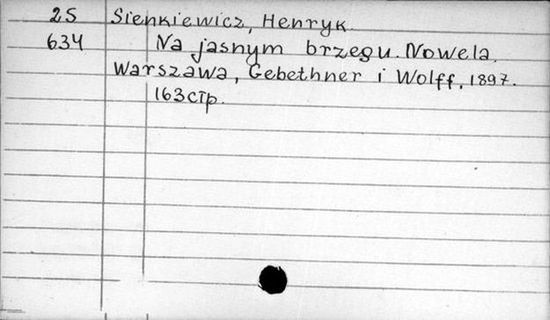 25 Sienkiewicz, Henryk.
634 Na jasnym brzegu. Nowela.
Warszawa, Gebethner i Wolff, 1897.
163стр.